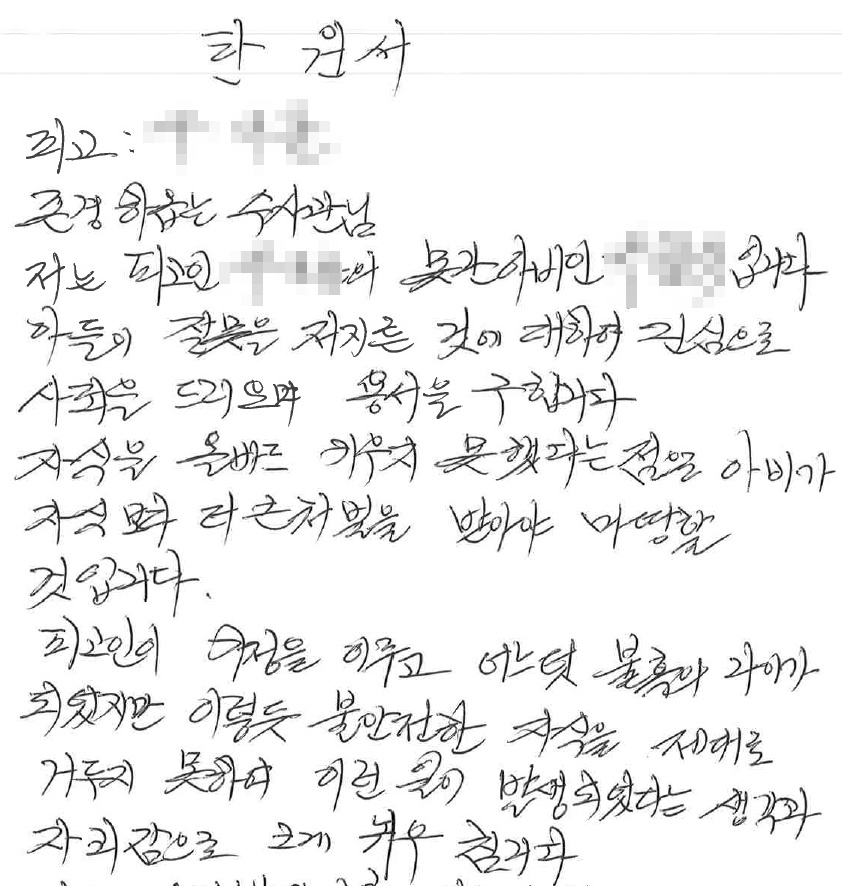 탄 원 서
피고:
존경하옵는 수사관님
저는 피고인 의 못난아비인 입니다
아들의 잘못을 저지른 것에 대하여 진심으로
사죄을 드리오며 용서을 구합니다
자식을 올바르 키우지 못했다는 점으로 아비가
자식보다 더 큰처벌을 받아야 마땅할
것입니다.
피고인이 가정을 이루고 어느덧 불혹의 나이가
되었지만 이렇듯 불안전한 자식을 제대로
거두지 못하여 이런 일이 발생되었다는 생각과
자괴감으로 크게 뉘우칩니다